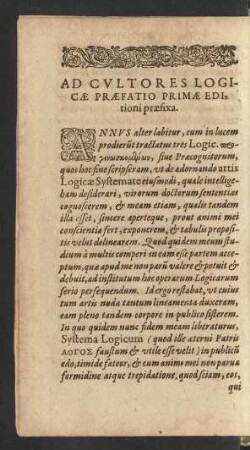 AD CVLTORES LOGI-
CÆ PRÆFATIO PRIMÆ EDI-
tioni præfixa.
ANNVS alter labitur, cum in lucem
prodierũt tractatus tres Logic.
siue Præcognitorum,
quos hoc fine scripseram, vt de adornando artis
Logicæ Systemate eiusmodi, quale intellige-
bam desiderari, virorum doctorum sententias
cognoscerem, & meam etiam, qualis tandem
illa esset, sincere aperteque, prout animi mei
conscientia fert, exponerem, & tabulis proposi-
tis velut delinearem. Quod quidem meum stu-
dium à multis comperi in eam esse partem acce-
ptum, quæ apud me non parũ valere & potuit &
debuit, ad institutum hoc operum Logicarum
serio persequendum. Idergo restabat, vt cuius
tum artis nuda tantum lineamenta duxeram,
eam pleno tandem corpore in publico sisterem.
In quo quidem nunc fidem meam liberaturus,
Systema Logicum (quod ille æterni Patris
ΛΟΓΟΣ faustum & vtile esse velit) in publicũ
edo, timide fateor, & cum animi mei non parua
formidine atque trepidatione, quod sciam, eos,
qui